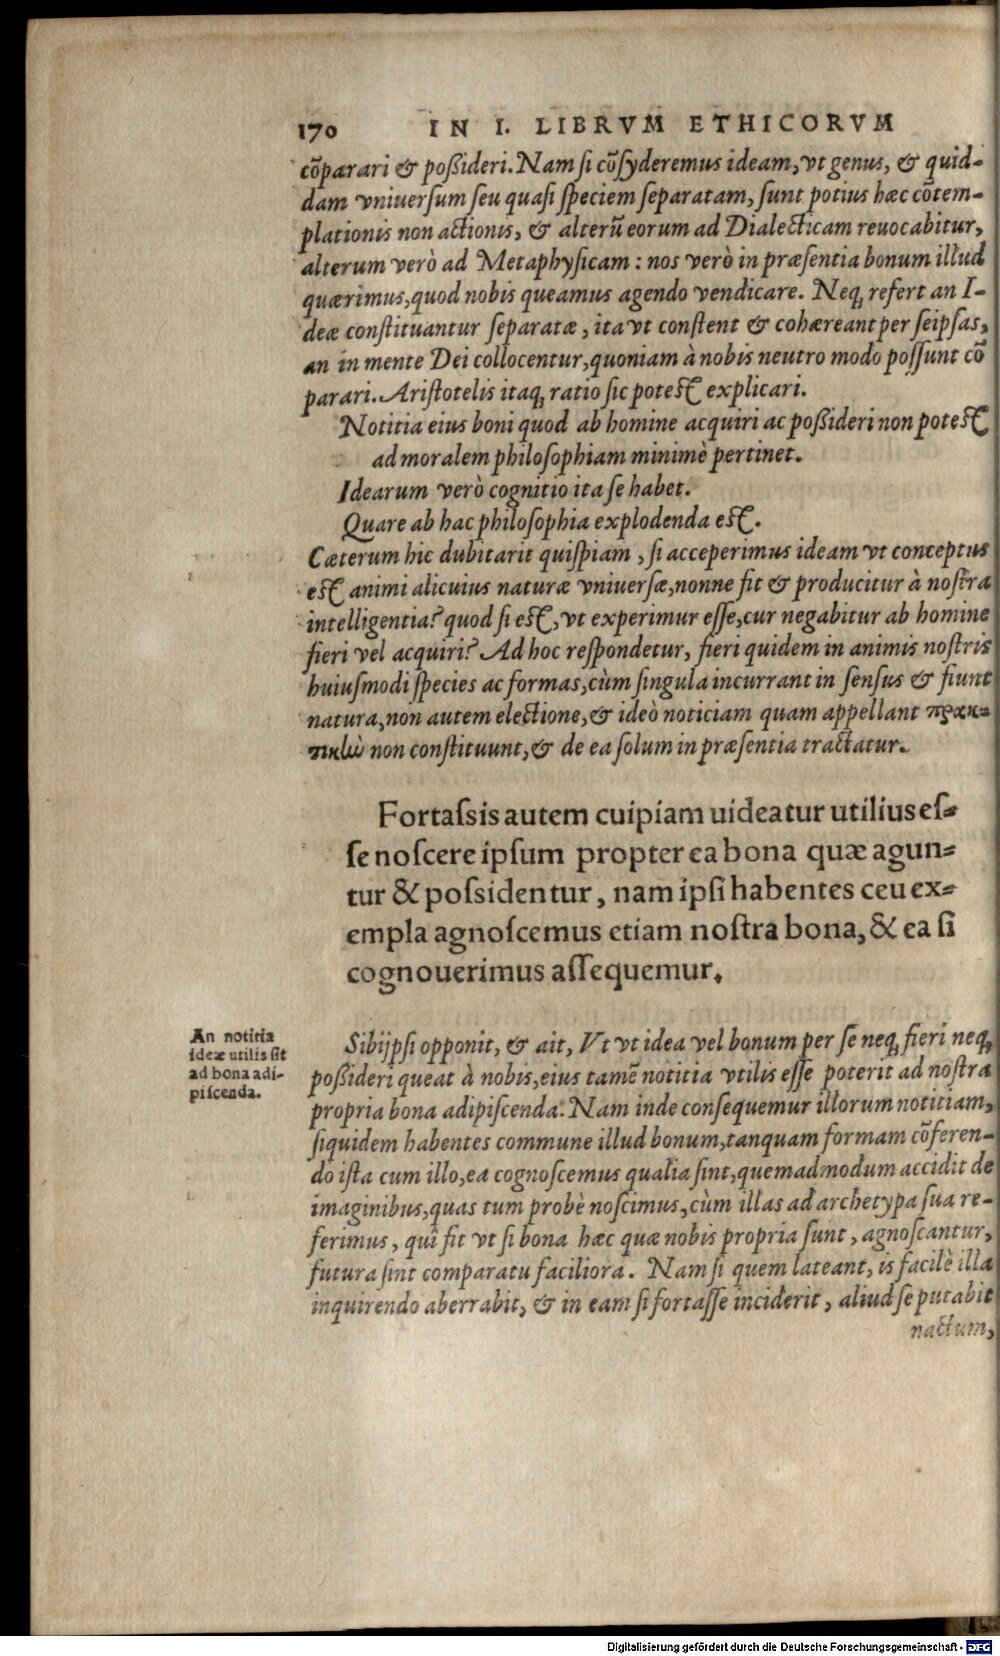 170 IN I. LIBRVM ETHICORVM
cõparari & poßideri. Nam si cõsyderemus ideam, vt genus, & quid-
dam vniuersum seu quasi speciem separatam, sunt potius hæc cõtem-
plationis non actionis, & alterũ eorum ad Dialecticam reuocabitur,
alterum verò ad Metaphysicam: nos verò in præsentia bonum illud
quærimus, quod nobis queamus agendo vendicare. Neq; refert an I-
deæ constituantur separatæ, ita vt constent & cohæreant per seipsas,
an in mente Dei collocentur, quoniam à nobis neutro modo possunt cõ
parari. Aristotelis itaq; ratio sic potest explicari.
Notitia eius boni quod ab homine acquiri ac poßideri non potest
ad moralem philosophiam minimè pertinet.
Idearum verò cognitio ita se habet.
Quare ab hac philosophia explodenda est.
Cæterum hic dubitarit quispiam, si acceperimus ideam vt conceptus
est animi alicuius naturæ vniuersæ, nonne fit & producitur à nostra
intelligentia? quod si est, vt experimur esse, cur negabitur ab homine
fieri vel acquiri? Ad hoc respondetur, fieri quidem in animis nostris
huiusmodi species ac formas, cùm singula incurrant in sensus & fiunt
natura, non autem electione, & ideò noticiam quam appellant πρακ-
τικὼ non constituunt, & de ea solum in præsentia tractatur.
Fortassis autem cuipiam uideatur utilius es-
se noscere ipsum propter ea bona quæ agun-
tur & possidentur, nam ipsi habentes ceu ex-
empla agnoscemus etiam nostra bona, & ea si
cognouerimus assequemur.
An notitia
ideæ utilis sit
ad bona adi-
piscenda.
Sibijpsi opponit, & ait, Vt vt idea vel bonum per se neq; fieri neq;
poßideri queat à nobis, eius tamẽ notitia vtilis esse poterit ad nostra
propria bona adipiscenda. Nam inde consequemur illorum notitiam,
siquidem habentes commune illud bonum, tanquam formam cõferen-
do ista cum illo, ea cognoscemus qualia sint, quemadmodum accidit de
imaginibus, quas tum probè noscimus, cùm illas ad archetypa sua re-
ferimus, quî fit vt si bona hæc quæ nobis propria sunt, agnoscantur,
futura sint comparatu faciliora. Nam si quem lateant, is facilè illa
inquirendo aberrabit, & in eam si fortasse inciderit, aliud se putabit
nactum,
Digitalisierung gefördert durch die Deutsche Forschungsgemeinschaft - DFG